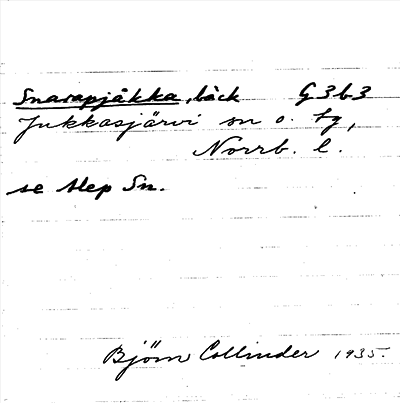 Snarapjåkka, bäck G3b3
Jukkasjärvi sn o. tg,
Norrb. l.
se Alep Sn.
Björn Collinder 1935.